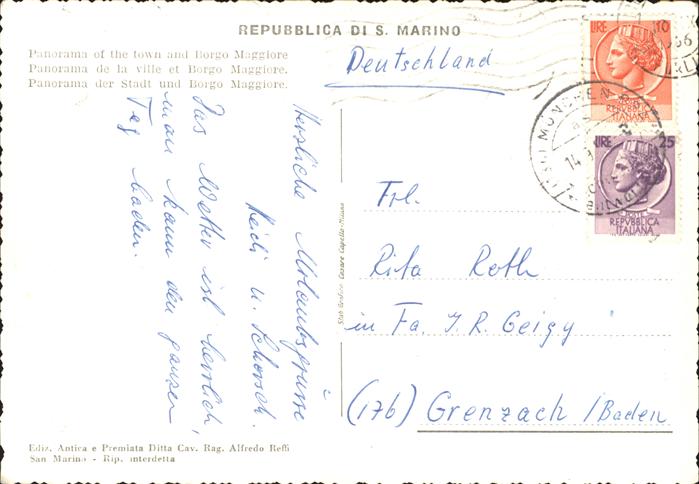 REPUBBLICA DI S. MARINO
Panorama of the town and Borgo Maggiore
Panorama de la ville et Borgo Maggiore.
Panorama der Stadt und Borgo Maggiore.
Deutschland
Herzliche Urlaubsgrüsse
Heidi u. Schorsch.
Das Wetter ist herrlich,
man kann den ganzen
Tag baden.
Frl.
Rita Roth
in Fa. J. R. Geigy
(17b) Grenzach / Baden
Stab. Grafico Cesare Capello - Milano
Ediz. Antica e Premiata Ditta Cav. Rag. Alfredo Reffi
San Marino - Rip. interdetta
LIRE 10
POSTE
REPVBBLICA
ITALIANA
LIRE 25
POSTE
REPVBBLICA
ITALIANA
MÜNCHEN